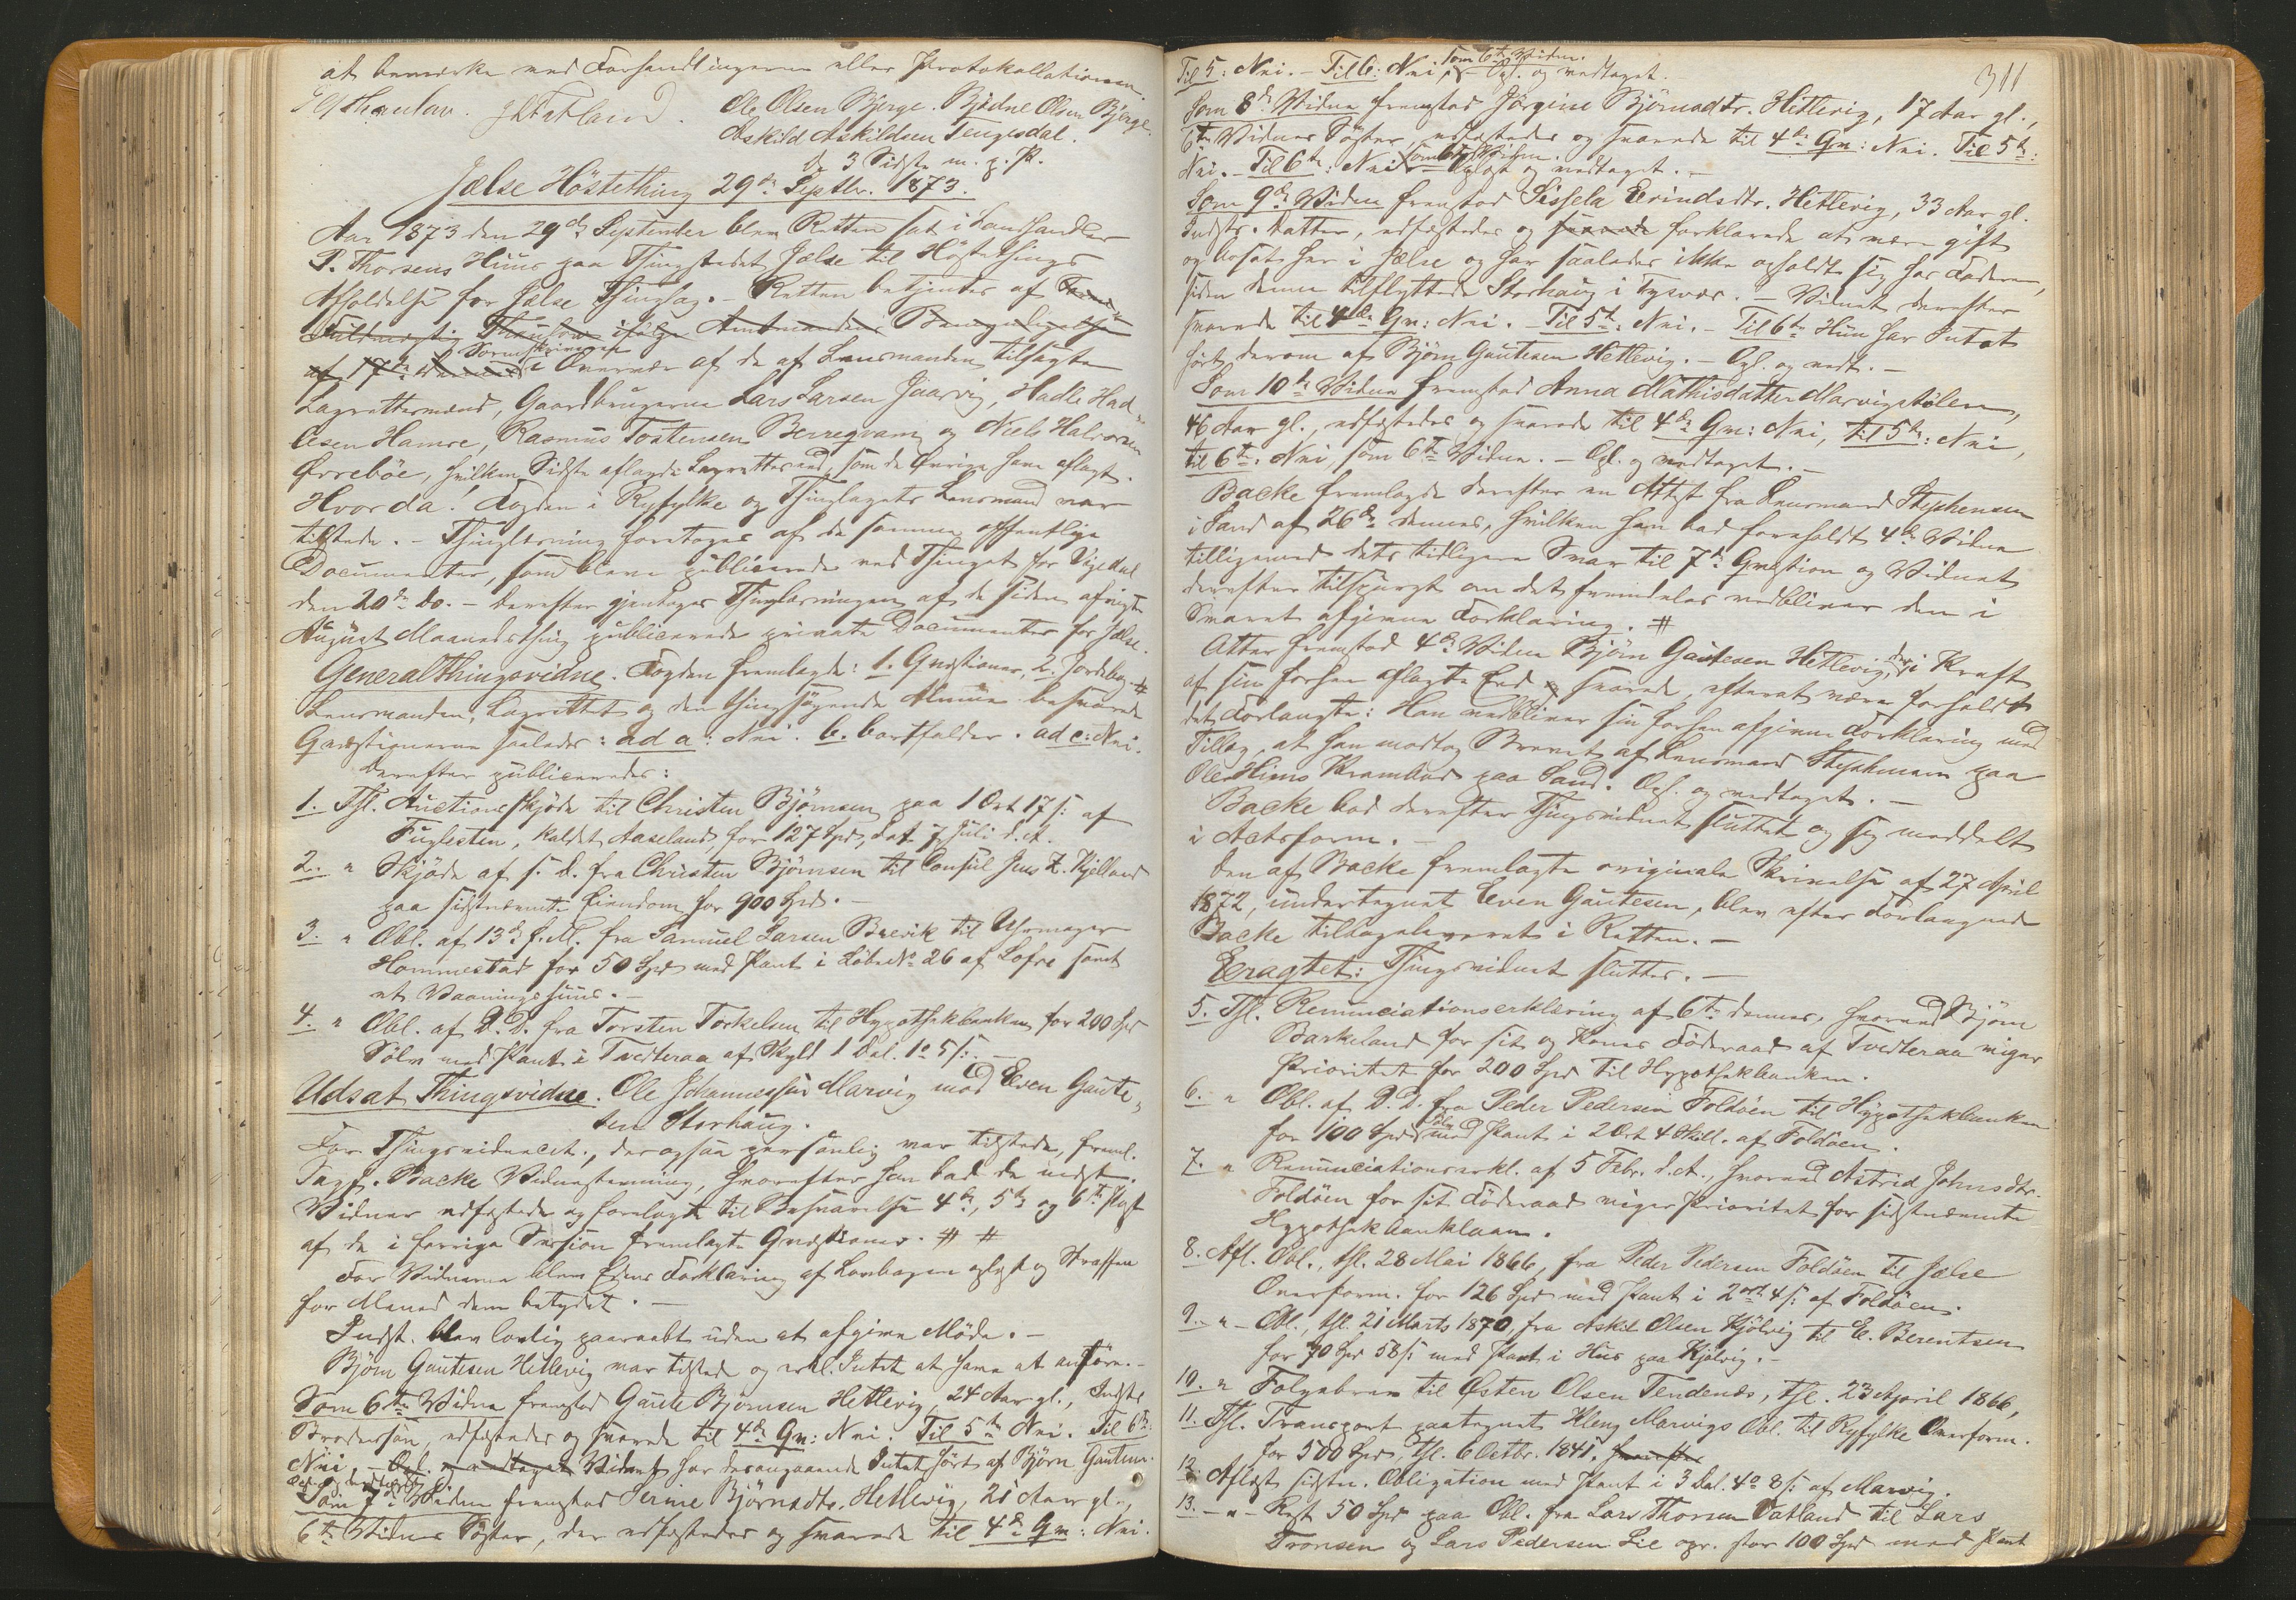 at bemærke ved Forhandlingerne eller Protokollationen.
J. Fatland. Ole Olsen Bjerge. Bjødne Olsen Bjerge.
Askild Askildsen Tengesdal.
de 3 Sidste m. p. P.
Jælse Høstething 29de Septbr. 1873.
Aar 1873 den 29de September blev Retten sat i Landhandler
P. Thorsens Huus paa Thingstedet Jælse til Høstethings
Afholdelse for Jælse Thinglag. – Retten betjentes af
Fuldmægtig Thaulow ifølge Amtmandens Bemyndigelse
af 17de dennes Sorenskriveren i Overvær af de af Lensmanden tilsagte
Lagrettemænd, Gaardbrugerne Lars Larsen Jaarvig, Hadle Had-
lesen Hamre, Rasmus Tostensen Berreqvam og Niels Halvorsen
Øvrebøe, hvilken Sidste aflagde Lagretteeed, som de Øvrige have aflagt.
Hvor da: Fogden i Ryfylke og Thinglagets Lensmand var
tilstede. – Thinglæsning foretoges af de samme offentlige
Documenter, som bleve publicerede ved Thinget for Vigedal
den 20de ds. – Derefter gjentoges Thinglæsningen af de siden afvigte
August Maanedsthing publicerede private Documenter for Jælse.
Generalthingsvidne. Fogden fremlagde: 1. Qvæstioner, 2. Jordebog #
Lensmanden, Lagrettet og den thingsøgende Almue besvarede
Qvæstionerne saaledes: ad a: Nei. b. bortfalder. ad c: Nei.
Derefter publiceredes:
1. Thl. Auctionsskjøde til Christen Bjørnsen paa 1 Ort 17 ß: af
Fuglesten, kaldet Aaseland for 127 Spd, dat. 7 Juli d. A.
2. " Skjøde af s. D. fra Christen Bjørnsen til Consul Jens Z. Kjelland
paa sidstnævnte Eiendom for 900 Spd. –
3. " Obl. af 13de f. M. fra Samuel Larsen Brevik til Uhrmager
Hommestad for 50 Spd med Pant i Løbe No 26 af Lofre samt
et Vaaningshuus. –
4. " Obl. af D. D. fra Torsten Torkelsen til Hypothekbanken for 200 Spd
Sølv med Pant i Tvedteraa af Skyld 1 Dal. 1o 5 ß. –
Udsat Thingsvidne. Ole Johannessen Marvig mod Even Gaute-
sen Storhaug.
For Thingsvidnecit., der ogsaa personlig var tilstede, freml.
Sagf. Backe Vidnestevning, hvorefter han bad de indst.
Vidner edfæstede og forelagt til Besvarelse 4de, 5te og 6te Post
af de i forrige Session fremlagte Qvæstioner. # #
For Vidnerne blev Edens Forklaring af Lovbogen oplæst og Straffen
for Meneed dem betydet. –
Indst. blev lovlig paaraabt uden at afgive Møde. –
Bjørn Gautesen Hetlevig var tilstede og erkl. Intet at have at anføre. –
Som 6te Vidne fremstod Gaute Bjørnsen Hetlevig, 24 Aar gl., Indsts
Brodersøn, edfæstedes og svarede til 4de Qv: Nei. Til 5te Nei. Til 6te:
Nei, – Opl. og vedtaget Vidnet har desangaaende Intet hørt af Bjørn Gautesen.
Opl. og vedtaget.
Som 7de Vidne fremstod Serine Bjørnsdtr. Hetlevig, 21 Aar gl.,
6te Vidnes Søster, der edfæstedes og svarede til 4de Qv: Nei.
311
Til 5: Nei. – Til 6: Nei, som 6te Vidne. – Opl. og vedtaget.
Som 8de Vidne fremstod Jørgine Bjørnsdtr. Hetlevig, 17 Aar gl.,
6te Vidnes Søster, edfæstedes og svarede til 4de Qv: Nei. Til 5te:
Nei. – Til 6te: Nei som 6te Vidne. – Oplæst og vedtaget. –
Som 9de Vidne fremstod Sissela Evindsdtr. Hetlevig, 33 Aar gl.
Indsts. Datter, edfæstedes og svarede forklarede at være gift
og bosat her i Jælse og har saaledes ikke opholdt sig hos Faderen,
siden denne tilflyttede Storhaug i Tysvær. – Vidnet derefter
svarede til 4de Qv: Nei. – Til 5te: Nei. – Til 6te Hun har Intet
hørt derom af Bjørn Gautesen Hetlevig. – Opl. og vedt. –
Som 10de Vidne fremstod Anna Mathisdatter Marvigstølen,
46 Aar gl., edfæstedes og svarede til 4de Qv: Nei, til 5te: Nei,
til 6te: Nei, som 6te Vidne. – Opl. og vedtaget. –
Backe fremlagde derefter en Attest fra Lensmand Stephensen
i Sand af 26de dennes, hvilken han bad foreholdt 4de Vidne
tilligemed dets tidligere Svar til 7de Qvæstion og Vidnet
derefter tilspurgt om det fremdeles vedbliver den i
Svaret afgivne Forklaring. #
Atter fremstod 4de Vidne Bjørn Gautesen Hetlevig, der i Kraft
af sin forhen aflagte Eed svarede, efterat være foreholdt
det Forlangte: Han vedbliver sin forhen afgivne Forklaring med
Tillæg, at han modtog Brevet af Lensmand Stephensen paa
Ole Hiims Krambod paa Sand. Opl. og vedtaget. –
Backe bad derefter Thingsvidnet sluttet og sig meddelt
i Actsform. –
Den af Backe fremlagte originale Skrivelse af 27 April
1872, undertegnet Even Gautesen, blev efter Forlangende
Backe tilbageleveret i Retten. –
Eragtet: Thingsvidnet sluttes. –
5. Thl. Renunciationserklæring af 6te dennes, hvorved Bjørn
Barkeland for sit og Kones Føderaad af Tvedteraa viger
Prioritet for 200 Spd til Hypothekbanken.
6. " Obl. af D. D. fra Peder Pedersen Foldøen til Hypothekbanken
for 100 Spd Sølv med Pant i 2 Ort 4 Skill. af Foldøen.
7. " Renunciationserkl. af 5 Febr. d. A., hvorved Astrid Johnsdtr.
Foldøen for sit Føderaad viger Prioritet for sidstnævnte
Hypothekbanklaan.
8. Afl. Obl., thl. 28 Mai 1866, fra Peder Pedersen Foldøen til Jælse
Overform. for 126 Spd med Pant i 2 ort 4 ß: af Foldøen.
9. – " – Obl., thl. 21 Marts 1870, fra Askil Olsen Kjølvig til E. Berentsen
for 70 Spd 58 ß: med Pant i Hus paa Kjølvig. –
10. " Folgebrev til Østen Olsen Tendenes, thl. 23 April 1866,
11. Thl. Transport paategnet Kleng Marvigs Obl. til Ryfylke Overform.
for 500 Spd, thl. 6 Octbr. 1841.
12. Aflæst sidstn. Obligation med Pant i 3 Dal. 4o 8 ß: af Marvig.
13. – " – Rest 50 Spd paa Obl. fra Lars Thorsen Vatland til Lars
Tronsen og Lars Pedersen Lie opr. stor 100 Spd med Pant